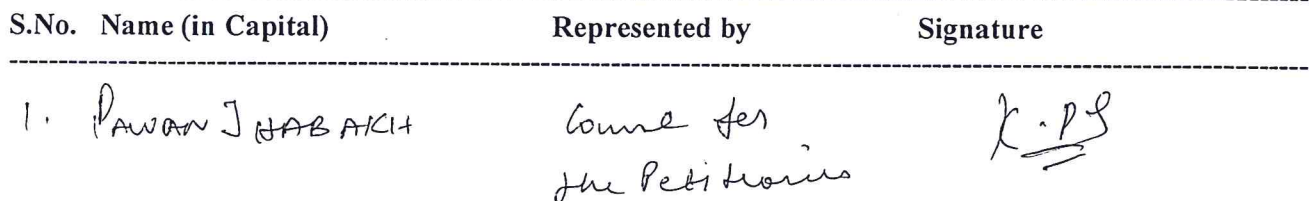 S.No. Name (in Capital) Represented by Signature
1. PAWAN JHABAKH Counsel for
the Petitioners
K.PJ